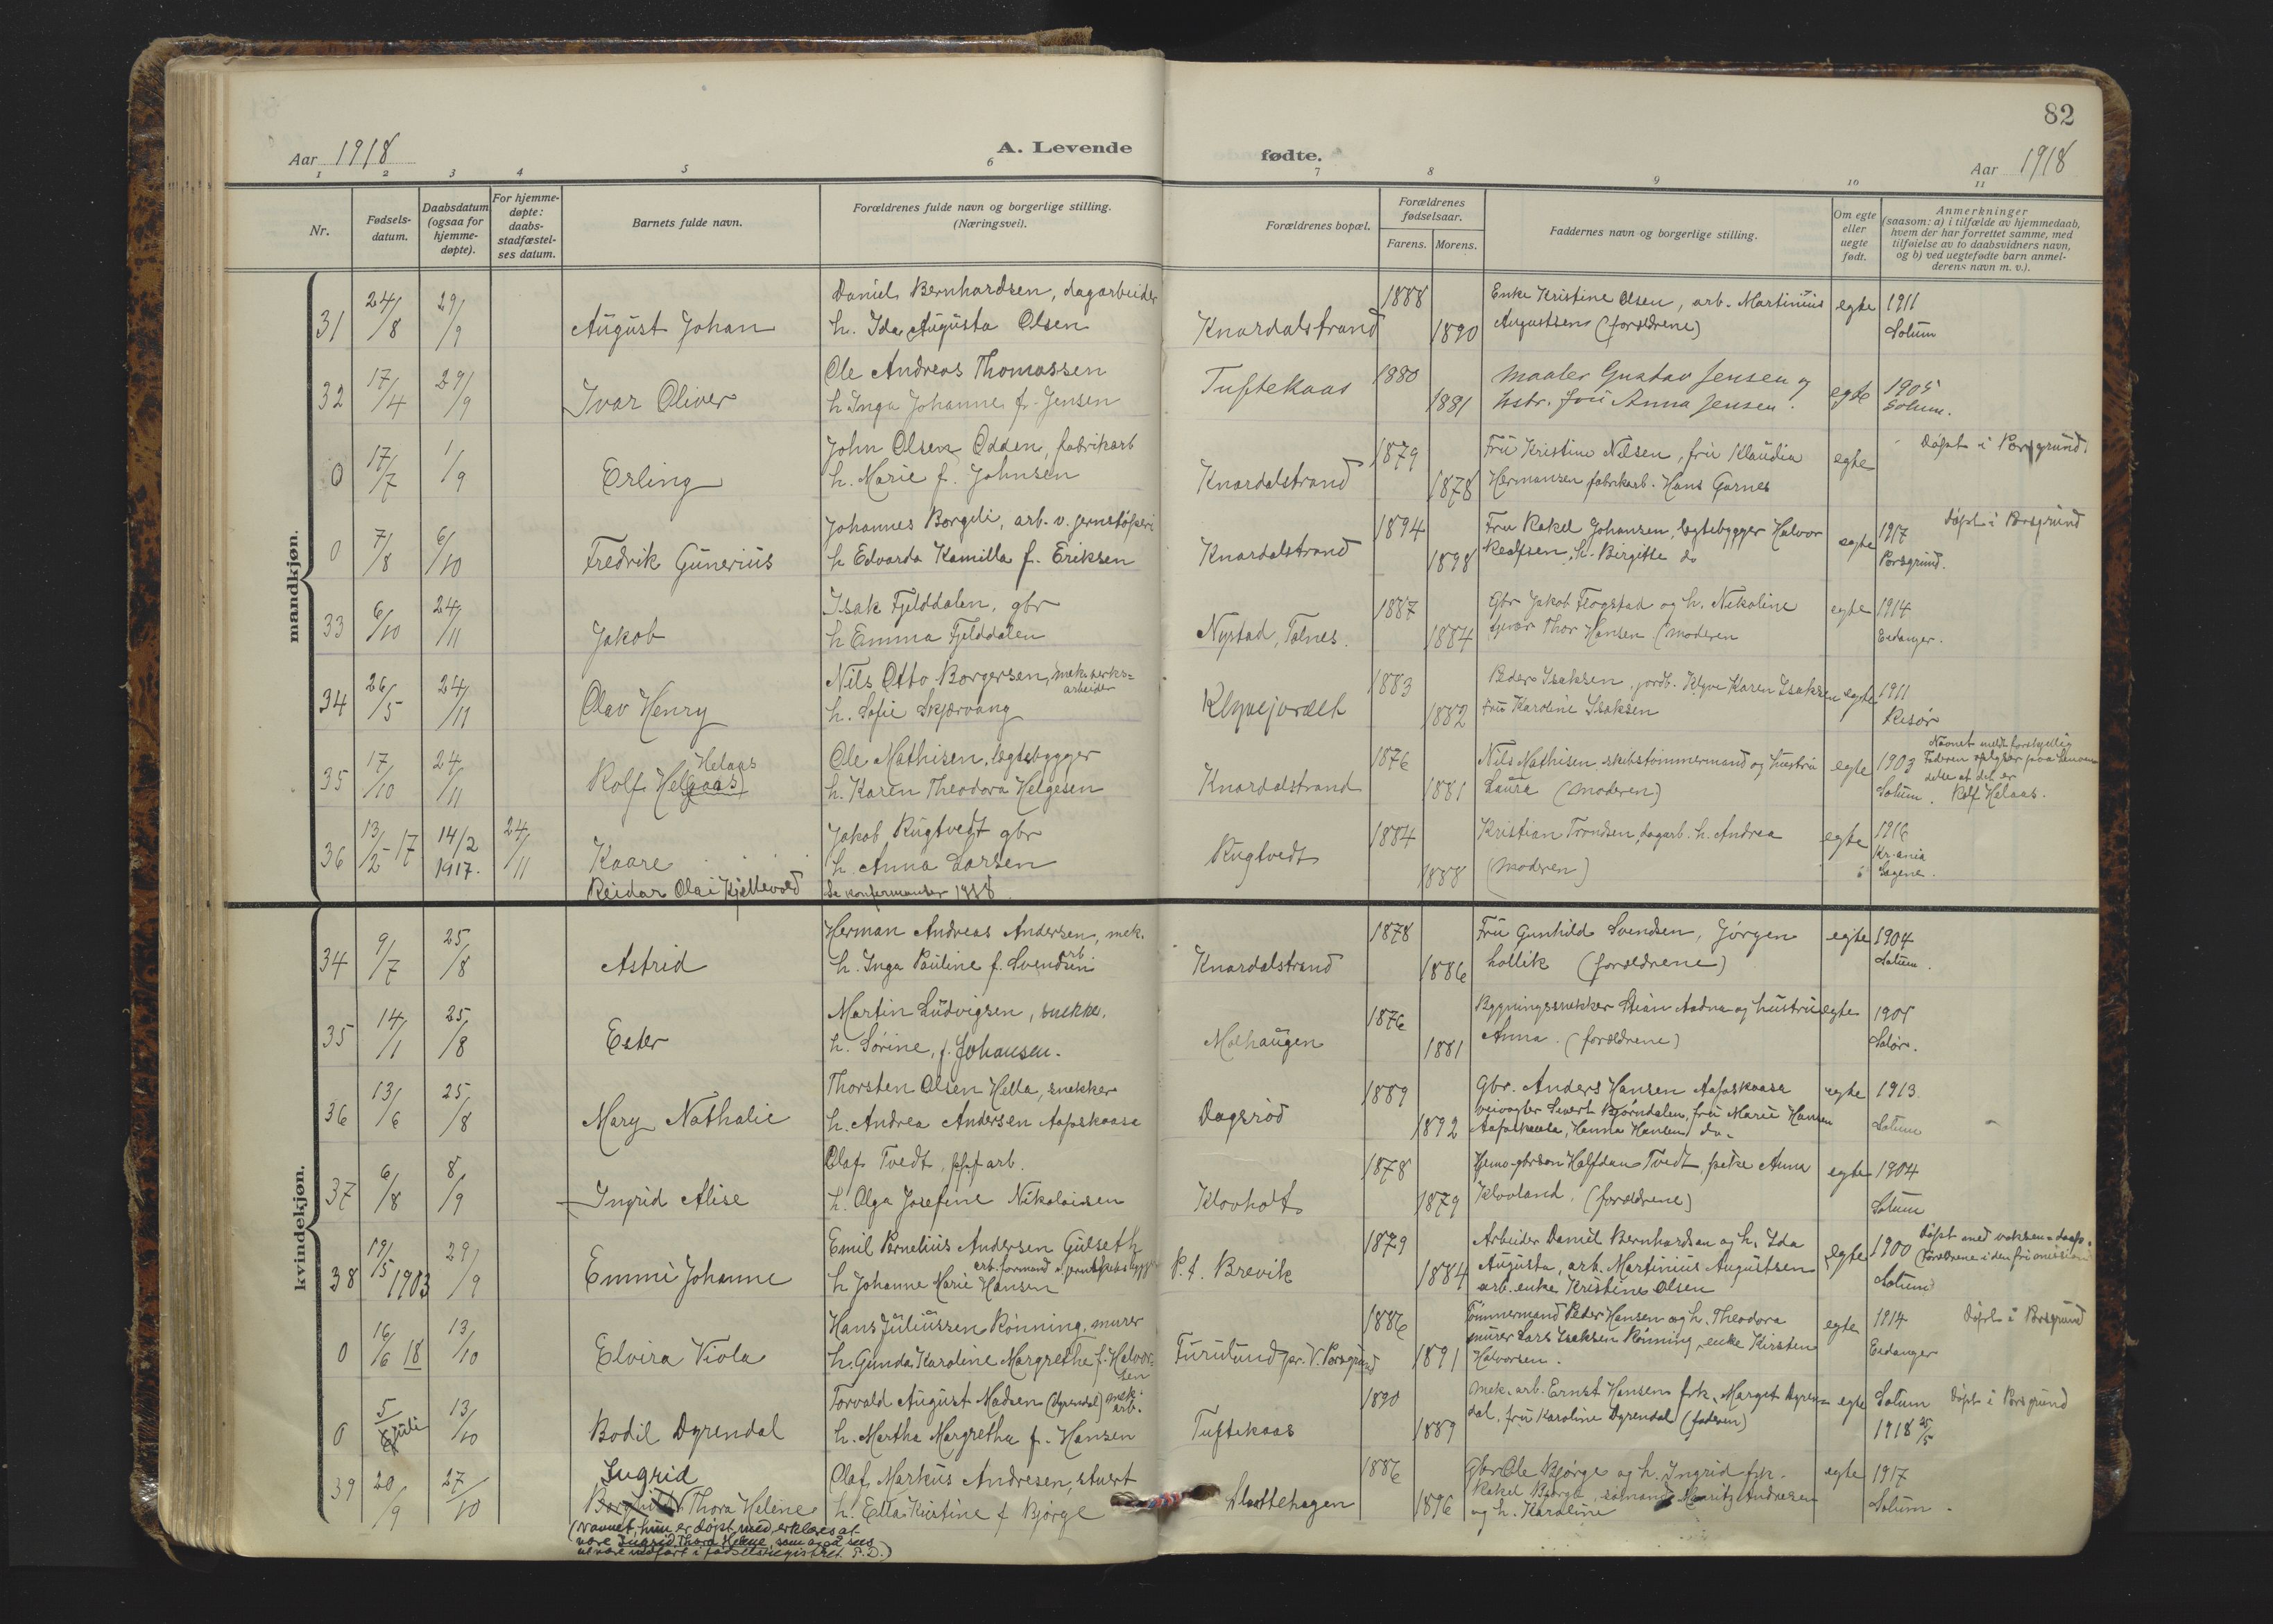 82
Aar 1918
A. Levende
fødte.
Aar 1918
1 2 3 4 5 6 7 8 9 10 11
Nr.
Fødsels-
datum.
Daabsdatum
(ogsaa for
hjemme-
døpte).
For hjemme-
døpte:
daabs-
stadfæstel-
ses datum.
Barnets fulde navn.
Forældrenes fulde navn og borgerlige stilling.
(Næringsvei).
Forældrenes bopæl.
Forældrenes
fødselsaar.
Farens. Morens.
Faddernes navn og borgerlige stilling.
Om egte
eller
uegte
født.
Anmerkninger
(saasom: a) i tilfælde av hjemmedaab,
hvem der har forrettet samme, med
tilføielse av to daabsvidners navn,
og b) ved uegtefødte barn anmel-
derens navn m. v.).
mandkjøn.
31 24/8 29/9 August Johan
Daniel Bernhardsen, dagarbeider
h. Ida Augusta Olsen
Knardalstrand 1888 1890
Enke Kristine Olsen, arb. Martinius
Augustsen (forældrene)
egte 1911
Solum
32 17/4 29/9 Ivar Oliver
Ole Andreas Thomassen
h Inga Johanne f. Jensen
Tuftekaas 1880 1881
Maaler Gustav Jensen og
hstr. fru Anna Jensen.
egte 1905
Solum.
0 17/7 1/9 Erling
John Olsen Odden, fabrikarb
h. Marie f. Johnsen
Knardalstrand 1879 1878
Fru Kristine Nilsen, fru Klaudia
Hermansen fabrikarb. Hans Garnes
egte Døpt i Porsgrund.
0 7/8 6/10 Fredrik Gunerius
Johannes Borgeli, arb. v. jernstøperi
h Edvarda Kamilla f. Eriksen
Knardalstrand 1894 1898
Fru Rakel Johansen, legtebygger Halvor
h. Birgitte do
egte 1917 Døpt i Porsgrund
Porsgrund.
33 6/10 24/11 Jakob
Isak Fjelddalen, gbr
h Emma Fjelddalen
Nystad, Tolnes. 1887 1884
Gbr Jakob Flogstad og h. Nikoline
Thor Hansen (moderen
egte 1914
Eidanger.
34 26/5 24/11 Olav Henry
Nils Otto Borgersen, mek. verks-
arbeider
h. Sofie Skjærvang
Klyvejordet 1883 1882
Peder Isaksen, jordb. Klyve Karen Isaksen
Fru Karoline Isaksen
egte 1911
Risør
35 17/10 24/11 Rolf Helgaas Helaas
Ole Mathisen, legtebygger
h. Karen Theodora Helgesen
Knardalstrand 1876 1881
Nils Mathisen skibstømmermand og hustru
Laura (moderen)
egte 1903
Solum.
Navnet meldt forskjellig
Faderen oplyser paa henven
delse at det er
Rolf Helaas.
36 13/2-17 14/2 1917. 24/11 Kaare
Jakob Rugtvedt gbr
h. Anna Larsen
Rugtvedt 1884 1888
Kristian Trondsen, dagarb. h. Andrea
(moderen)
egte 1916
Kr.ania
Sagene.
Reidar Olai Kjellevold Se konfirmanter 1938
kvindekjøn.
34 9/7 25/8 Astrid
Herman Andreas Andersen, mek.
arb
h. Inga Pauline f. Svendsen
Knardalstrand 1878 1886
Fru Gunhild Svendsen, Jørgen
Hollik (forældrene)
egte 1904
Solum.
35 14/1 25/8 Ester
Martin Ludvigsen, snekke.
h. Sørine, f. Johansen.
Moehaugen 1876 1881
Bygningssnekker Stian Aadna og hustru
Anna. (forældrene)
egte 1905
Solør.
36 13/6 25/8 Mary Nathalie
Thorsten Olsen Hella, snekker
h. Andrea Andersen Aafoskaasa
Dagsrød 1889 1892
Gbr. Anders Hansen Aafoskaasa
veivogter Sivert Bjørndalen, fru Marie Hansen
Aafoskaasa, Hanna Hansen do.
egte 1913
Solum
37 6/8 8/9 Ingrid Alise
Olaf Tvedt, arb.
h. Olga Josefine Nikolaisen
Klovholt 1878 1879
Hjemv. gbrsøn Halfdan Tvedt, pike Anna
Klovland. (forældrene)
egte 1904
Solum
38 19/5 1903 29/9 Emmi Johanne
Emil Pernelius Andersen Gulseth
arb.formand
h Johanne Marie Hansen
P.t. Brevik 1879 1884
Arbeider Daniel Bernhardsen og h. Ida
Augusta, arb. Martinius Augustsen
arb. enke Kristine Olsen
egte 1900
Solum
Døpt med voksen-daap.
Forældrene i den fri mission
0 16/6 18 13/10 Elvira Viola
Hans Juliussen Rønning, murer
h. Gunda Karoline Margrethe f. Halvor-
sen
Furulund pr. V. Porsgrund 1886 1891
Tømmermand Peder Hansen og h. Theodora
murer Lars Isaksen Rønning, enke Kirsten
Halvorsen.
egte 1914 Døpt i Porsgrund
Eidanger
0 5/juli 13/10 Bodil Dyrendal
Torvald August Madsen (Dyrendal) mek.
arb.
h. Martha Margretha f. Hansen
Tuftekaas 1890 1889
Mek. arb. Ernst Hansen frk. Margit Dyren-
dal, fru Karoline Dyrendal (faderen)
egte Solum Døpt i Porsgrund
1918 25/5
39 20/9 27/10 Ingrid
Borghild Thora Helene
Olaf Markus Andresen, stuert
h. Ella Kristine f Bjørge
Slottehagen 1886 1896
Gbr Ole Bjørge og h. Ingrid frk.
Rakel Bjørge, sømand Moritz Andresen
og h. Karoline
egte 1917
Solum.
(Navnet, hun er døpt med, erklæres at
være Ingrid Thora Helene, som ogsaa sees
at være indført i fødselsregistret. P.D.)